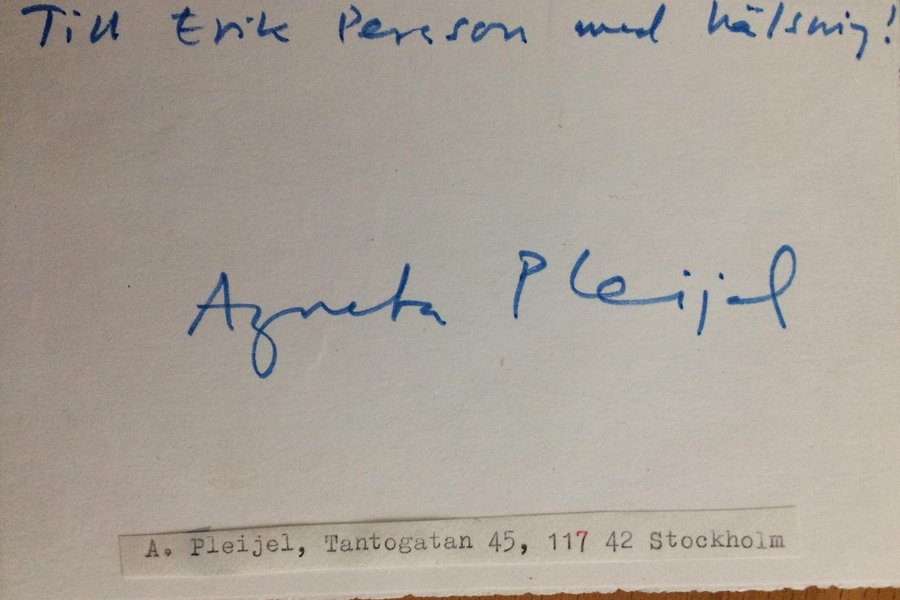 Till Erik Persson med hälsning!
Agneta Pleijel
A. Pleijel, Tantogatan 45, 117 42 Stockholm